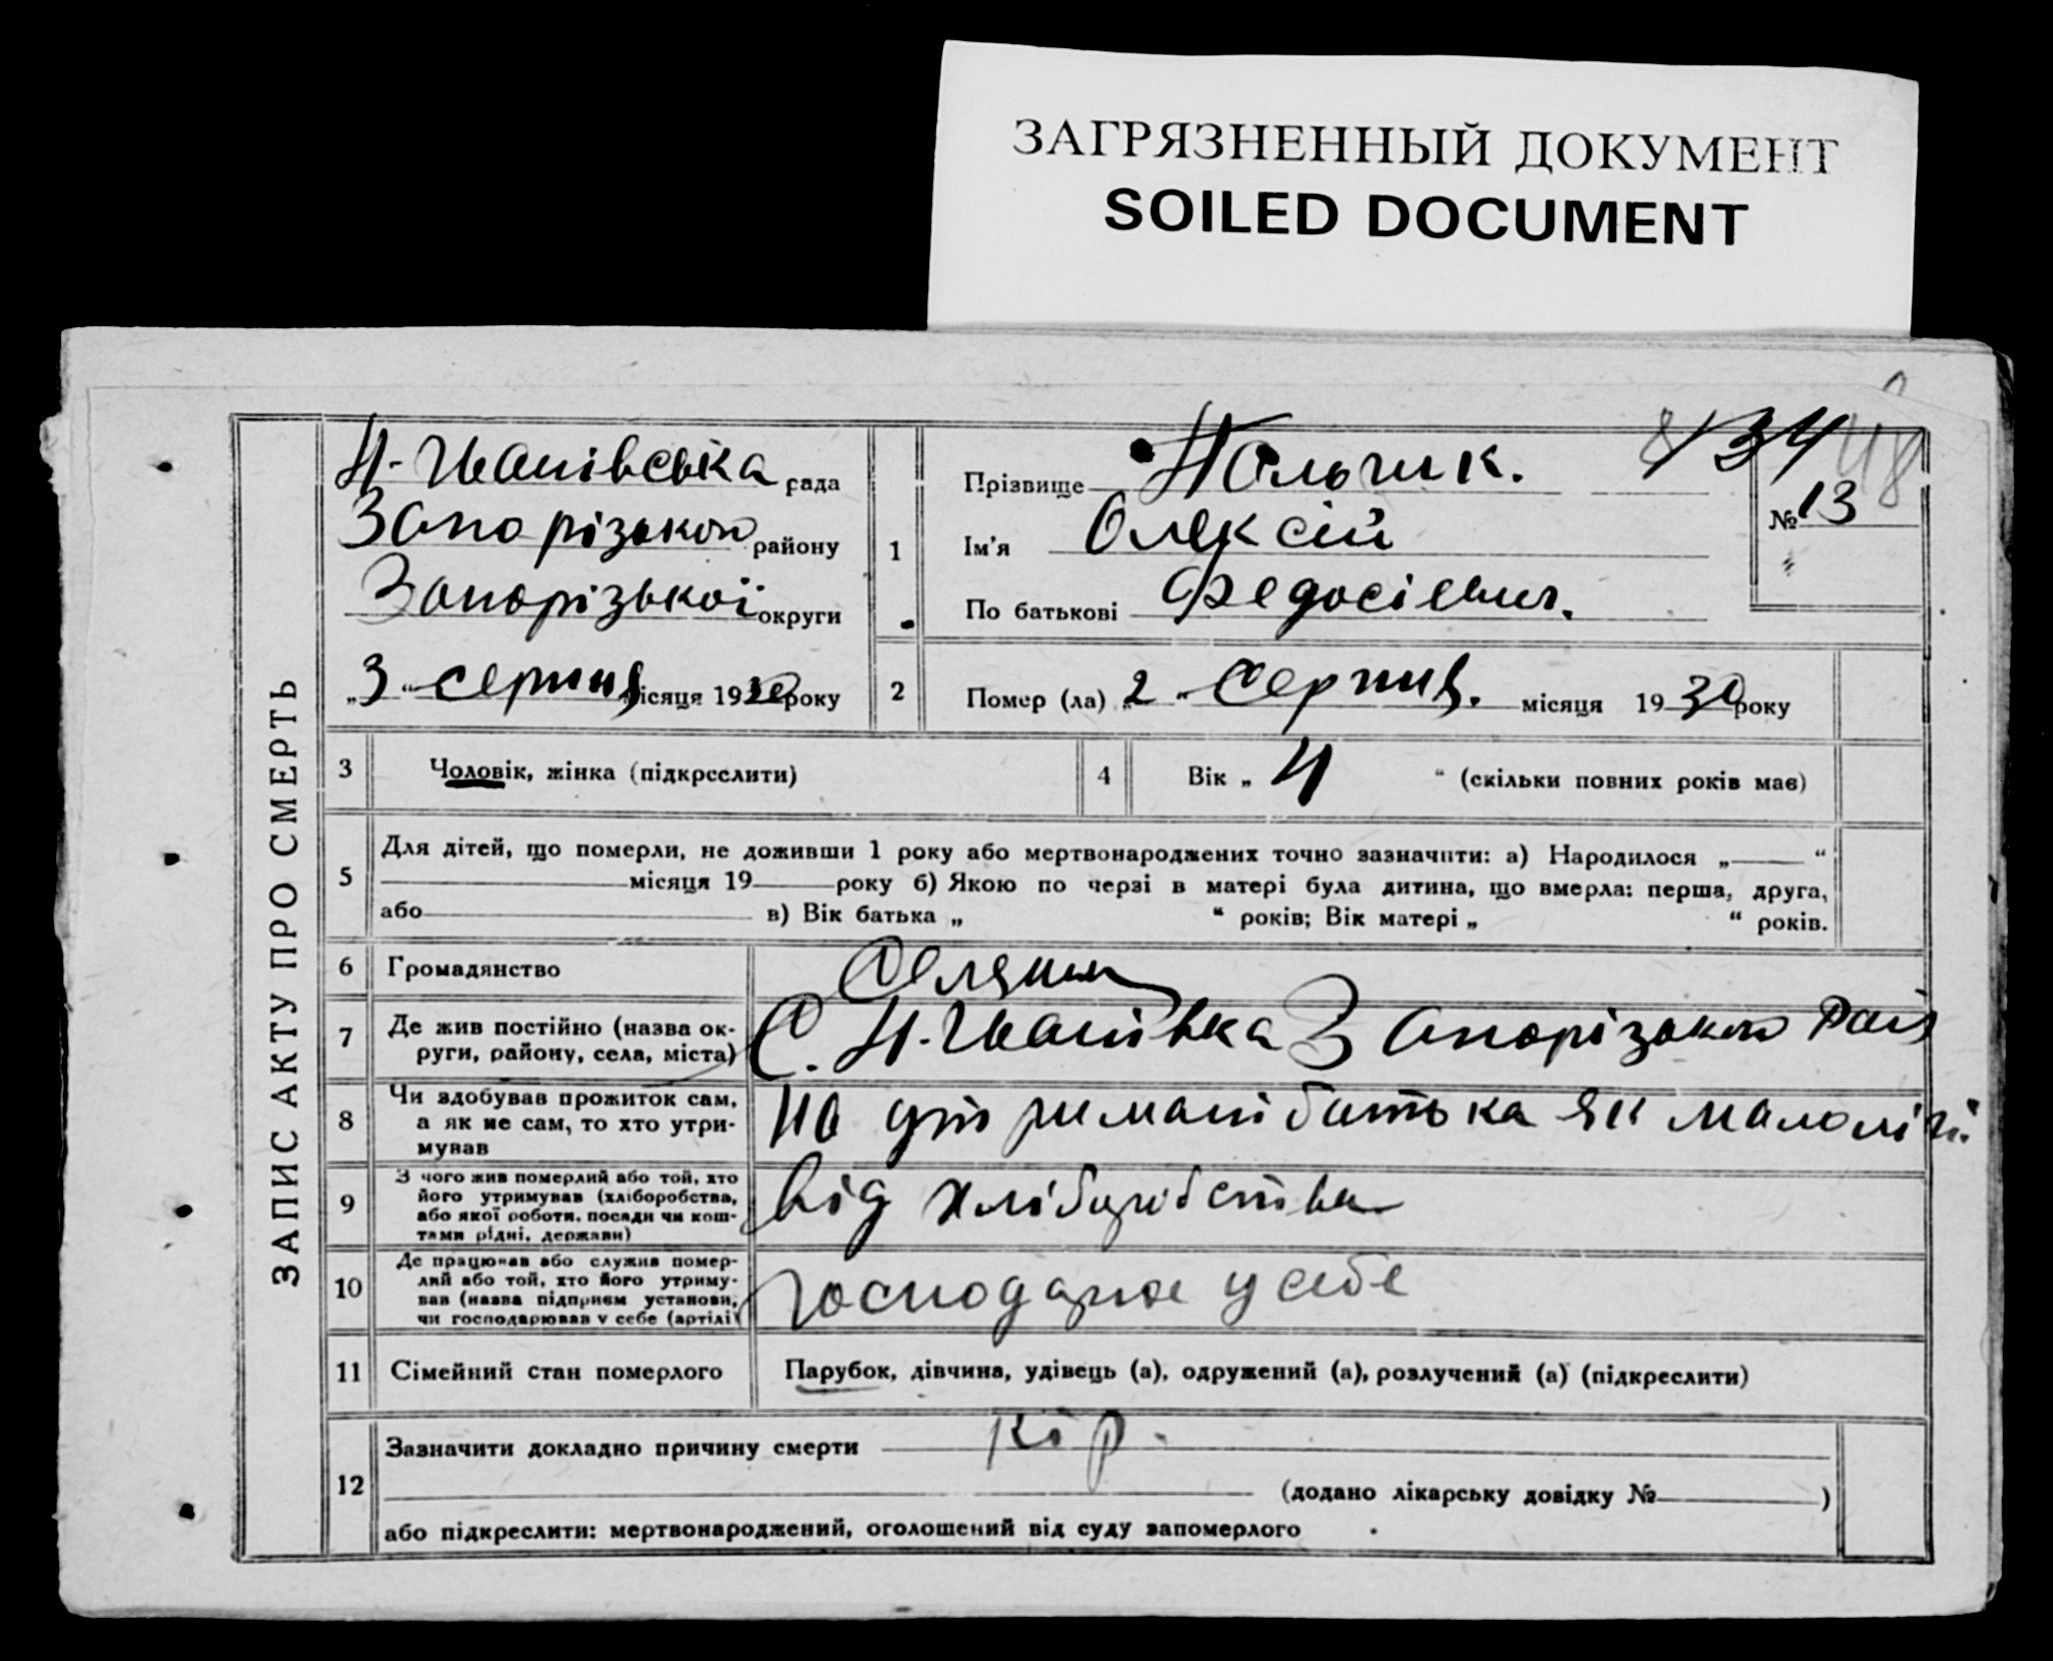 ЗАГРЯЗНЕННЫЙ ДОКУМЕНТ
SOILED DOCUMENT
ЗАПИС АКТУ ПРО СМЕРТЬ
Н-Іванівська рада
Запорізького району
Запорізької округи
„3“ серпня місяця 1930 року
1
Прізвище Кольчик.
Ім'я Олексій
По батькові Федосієвич.
134
48
№ 13
2 Помер (ла) „2“ Серпня. місяця 1930 року
3 Чоловік, жінка (підкреслити)
4 Вік „ 4 “ (скільки повних років має)
5 Для дітей, що померли, не доживши 1 року або мертвонароджених точно зазначити: а) Народилося „ “
місяця 19 року б) Якою по черзі в матері була дитина, що вмерла: перша, друга,
або в) Вік батька „ “ років; Вік матері „ “ років.
6 Громадянство Селянин
7 Де жив постійно (назва ок-
руги, району, села, міста) С. Н-Іванівка Запорізького Рай
8 Чи здобував прожиток сам,
а як не сам, то хто утри-
мував
На утриманні батька як малоліт.
9 З чого жив померлий або той, хто
його утримував (хліборобства,
або якої роботи, посади чи кош-
тами рідні, держави)
від хліборобства
10 Де працював або служив помер-
лий або той, хто його утриму-
вав (назва підприєм установи,
чи господарював у себе (артілі)
господарює у себе
11 Сімейний стан померлого Парубок, дівчина, удівець (а), одружений (а), розлучений (а) (підкреслити)
12 Зазначити докладно причину смерти кір.
(додано лікарську довідку № )
або підкреслити: мертвонароджений, оголошений від суду запомерлого